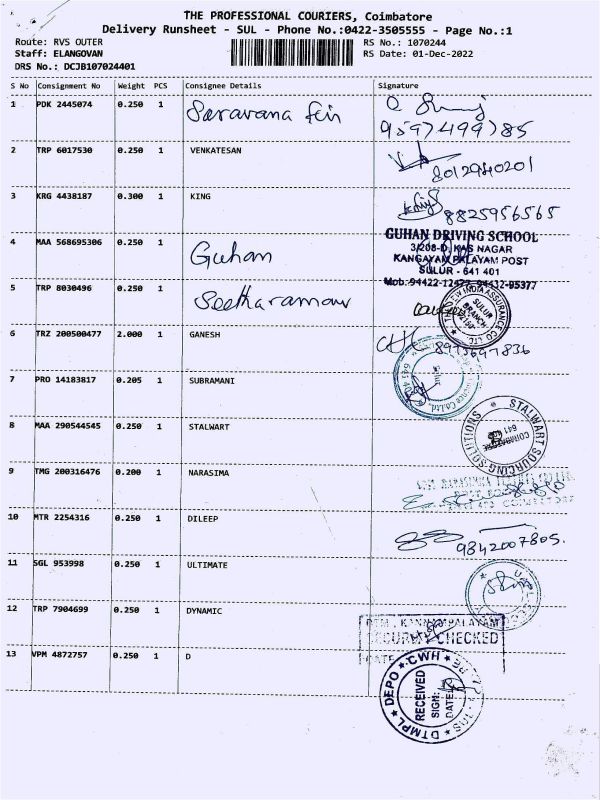 THE PROFESSIONAL COURIERS, Coimbatore
Delivery Runsheet - SUL - Phone No.:0422-3505555 - Page No.:1
Route: RVS OUTER RS No.: 1070244
Staff: ELANGOVAN RS Date: 01-Dec-2022
DRS No.: DCJB107024401
S No Consignment No Weight PCS Consignee Details Signature
1 PDK 2445074 0.250 1 Saravana
9597499785
2 TRP 6017530 0.250 1 VENKATESAN
8012940201
3 KRG 4438187 0.300 1 KING
8825956565
4 MAA 568695306 0.250 1 Guhan
GUHAN DRIVING SCHOOL
3/208-D, KAS NAGAR
KANGAYAM PALAYAM POST
SULUR - 641 401
Mob: 94422-12477, 94432-95377
5 TRP 8030496 0.250 1 Seetharaman
INDIA ASSURANCE CO. LTD.
SULUR BRANCH
6 TRZ 200500477 2.000 1 GANESH
8975697836
7 PRO 14183817 0.205 1 SUBRAMANI
8 MAA 290544545 0.250 1 STALWART
STALWART SOURCING SOLUTIONS
COIMBATORE
641
9 TMG 200316476 0.200 1 NARASIMA
10 MTR 2254316 0.250 1 DILEEP
9842007805.
11 SGL 953998 0.250 1 ULTIMATE
12 TRP 7904699 0.250 1 DYNAMIC
SECURITY CHECKED
DATE
13 VPM 4872757 0.250 1 D
DTMPL DEPO CWH
RECEIVED
SIGN:
DATE: